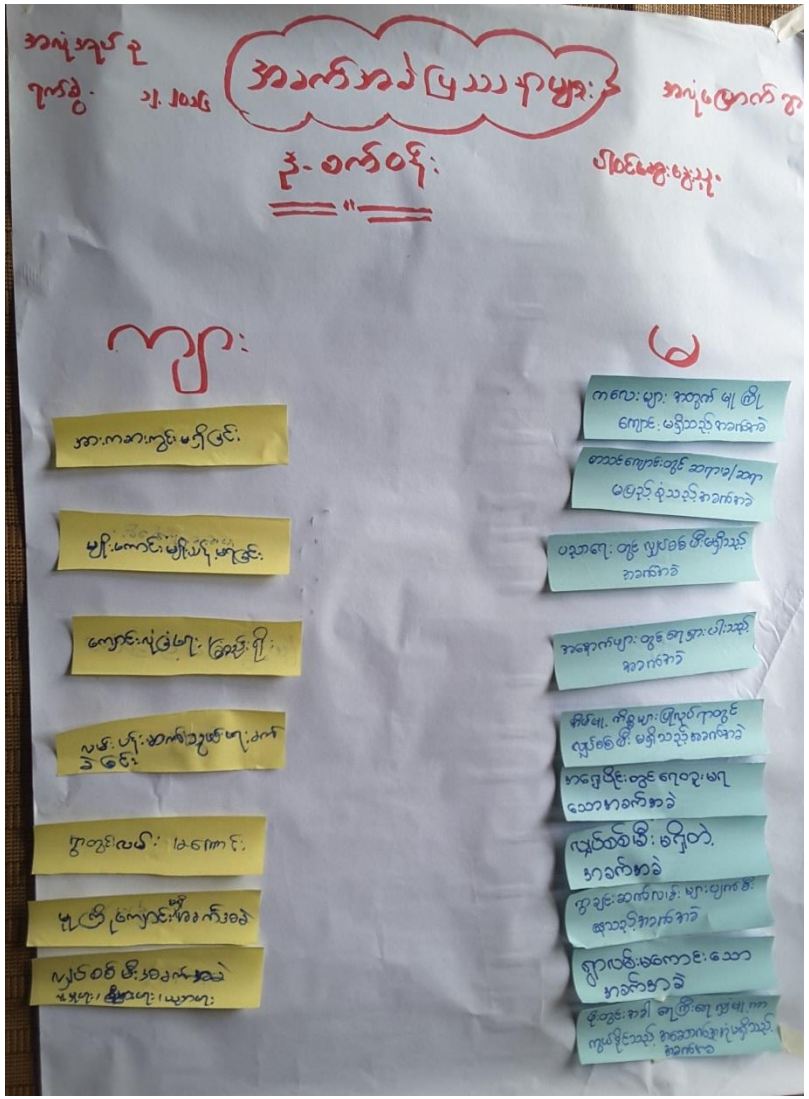 အလုံအုပ်စု
အခက်အခဲပြဿနာများ
အလုံမြောက်ရွာ
ရက်စွဲ-
ဒုံ-စက်ဝန်း
ပါဝင်ဆွေးနွေးသူ-
ကျား
မ
အားကစားကွင်းမရှိခြင်း
မျိုးကောင်းမျိုးသန့်မရခြင်း
ကျောင်းလုံခြုံရေး ခြံစည်းရိုး
လမ်းပန်းဆက်သွယ်ရေးခက်
ခဲခြင်း
ရွာတွင်းလမ်း မကောင်း
မူကြိုကျောင်းအခက်အခဲ
လျှပ်စစ်မီးအခက်အခဲ
ကလေးများအတွက် မူကြို
ကျောင်းမရှိသည့်အခက်အခဲ
စာသင်ကျောင်းတွင် ဆရာမ/ဆရာ
မပြည့်စုံသည့်အခက်အခဲ
ပညာရေးတွင် လျှပ်စစ်မီးမရှိသည့်
အခက်အခဲ
အနောက်ဖျားတွင် ရေရှားပါးသည့်
အခက်အခဲ
အိမ်မှုကိစ္စများပြုလုပ်ရာတွင်
လျှပ်စစ်မီးမရှိသည့်အခက်အခဲ
အရှေ့ပိုင်းတွင်ရေတူးမရ
သောအခက်အခဲ
လျှပ်စစ်မီးမရှိတဲ့
အခက်အခဲ
ရွာချင်းဆက်လမ်းများပျက်စီး
နေသည့်အခက်အခဲ
ရွာလမ်းမကောင်းသော
အခက်အခဲ
မိုးတွင်းအခါ ရေကြီးရေလျှံမှုကာ
ကွယ်နိုင်သည့် အဆောက်အအုံမရှိသည့်
အခက်အခဲ